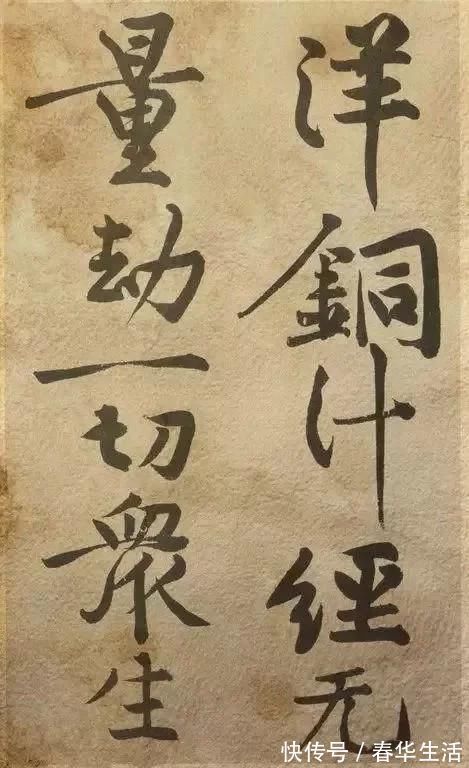 洋銅汁經无
量劫一切眾生
快传号 / 春华生活